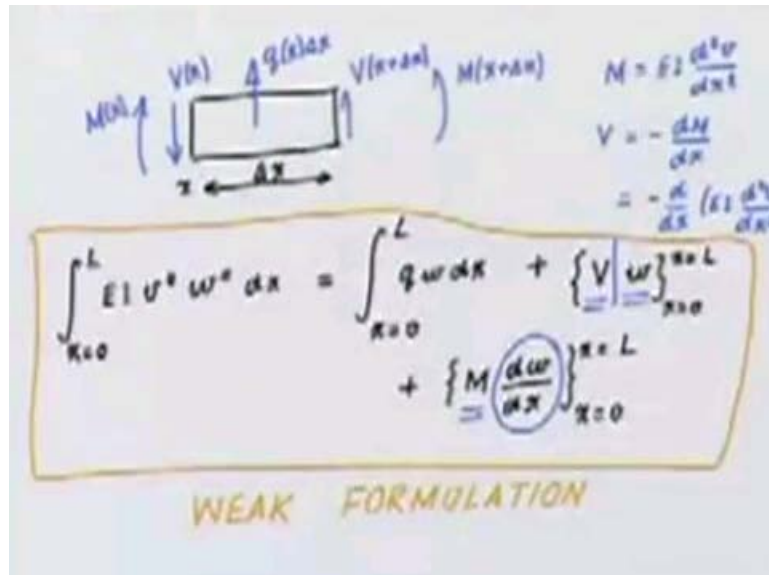 V(x) q(x)Δx V(x+Δx) M(x+Δx)
M(x)
x Δx
M = EI d²v/dx²
V = - dM/dx
= - d/dx (EI d²v/dx²
∫_{x=0}^{L} EI v'' w'' dx = ∫_{x=0}^{L} q w dx + {V w}_{x=0}^{x=L}
+ {M dw/dx}_{x=0}^{x=L}
WEAK FORMULATION